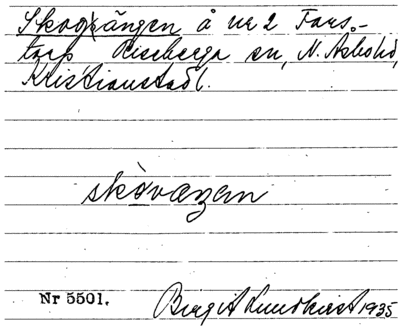 Skogsängen å nr 2 Fars-
torp Riseberga sn, N. Åsbohd,
Kristianstadsl.
skòvaŋan
Nr 5501.
Birgit Lundkvist 1935